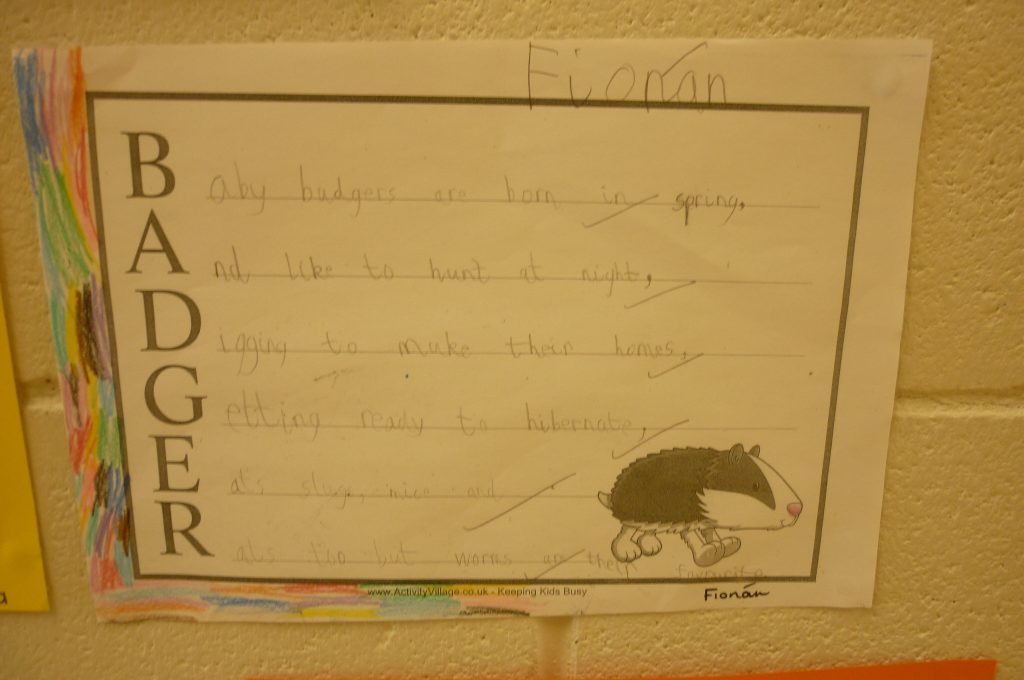 Fionán
Baby badgers are born in spring,
And like to hunt at night,
Digging to make their homes,
Getting ready to hibernate,
Eats slugs, mice and
Rats too but worms are their favourite
www.ActivityVillage.co.uk - Keeping Kids Busy
Fionán